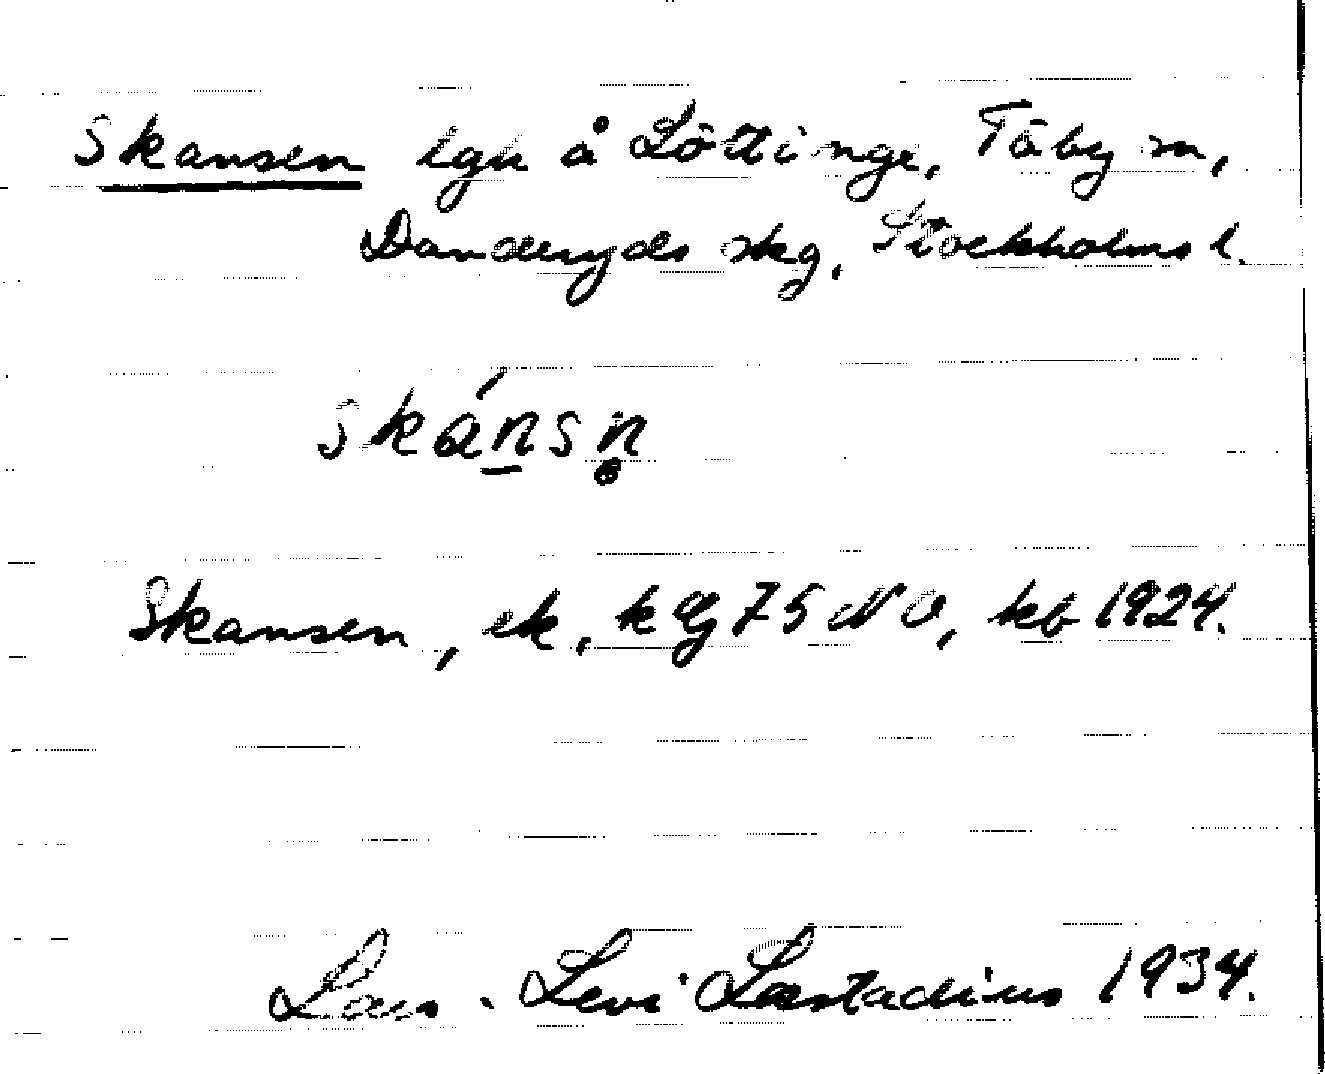 Skansen lgh å Löttinge, Täby sn,
Danderyds skg, Stockholms l.
skánsṇ
Skansen, ek, k Eg 75 NO, kb 1924.
Lars-Levi Læstadius 1934.